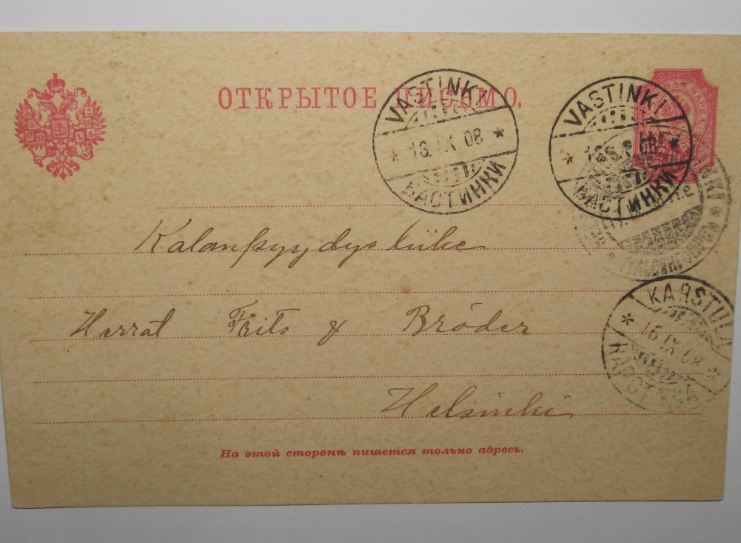 ОТКРЫТОЕ ПИСЬМО.
VASTINKI
16.IX.08
ВАСТИНКИ
VASTINKI
ВАСТИНКИ
KARSTULA
16.IX.08
Kalanpyydysliike
Herrat Frits & Bröder
Helsinki
На этой сторонѣ пишется только адресъ.